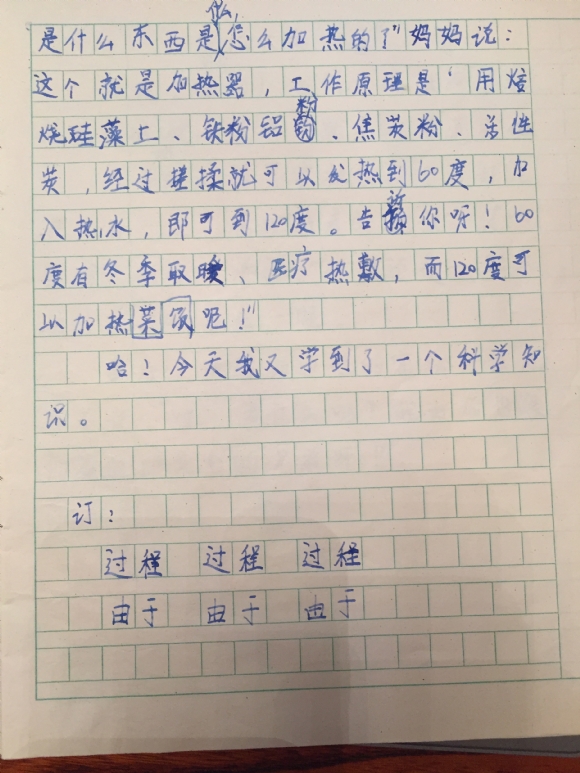 是什么东西是怎么加热的?"妈妈说:
这个就是加热器,工作原理是"用煅
烧硅藻土、铁粉铝粉、焦炭粉、活性
炭,经过搓揉就可以发热到60度,加
入热水,即可到120度。告诉你呀!60
度有冬季取暖、医疗热敷,而120度可
以加热菜饭呢!"
哈!今天我又学到了一个科学知
识。
订:
过程 过程 过程
由于 由于 由于